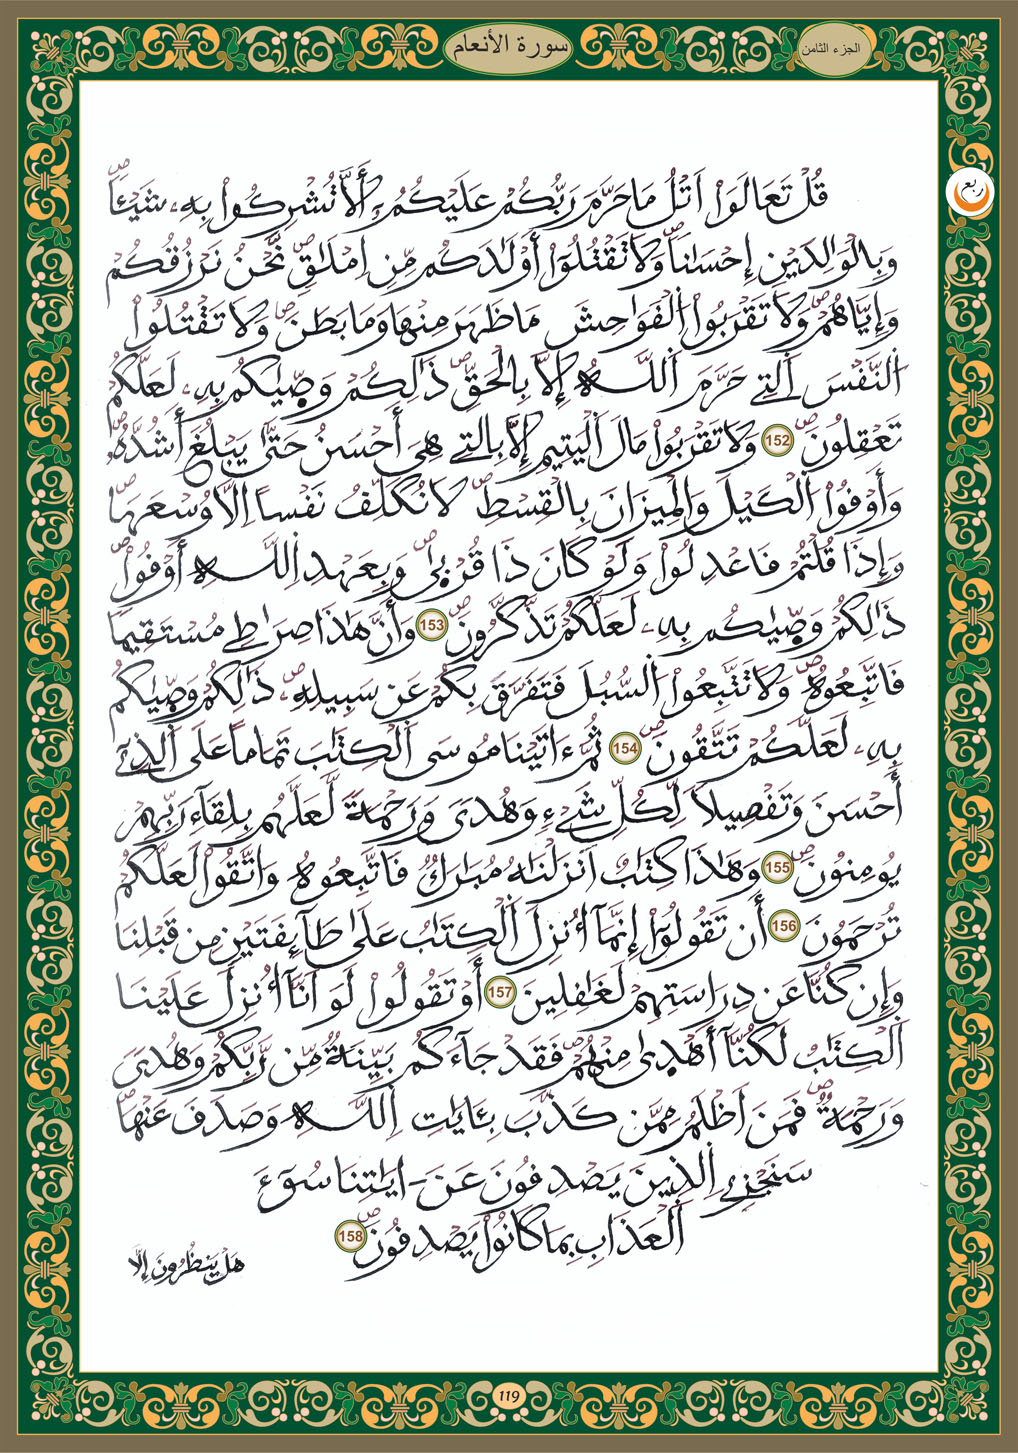 سورة الأنعام
الجزء الثامن
ربع
قُلْ تَعَالَوْاْ اَتْلُ مَا حَرَّمَ رَبُّكُمْ عَلَيْكُمُۥٓ أَلَّا تُشْرِكُواْ بِهِۦ شَيْـٔاً ص
وَبِالْوَٰلِدَيْنِ إِحْسَٰناً ص وَلَا تَقْتُلُوٓاْ أَوْلَٰدَكُم مِّنِ اِمْلَٰقٍ ص نَّحْنُ نَرْزُقُكُمْ
وَإِيَّاهُمْ ص وَلَا تَقْرَبُواْ اُلْفَوَٰحِشَ مَا ظَهَرَ مِنْهَا وَمَا بَطَنَ ص وَلَا تَقْتُلُواْ
اُلنَّفْسَ اَلتِے حَرَّمَ اَللَّهُ إِلَّا بِالْحَقِّ ص ذَٰلِكُمْ وَصّ۪يٰكُم بِهِۦ لَعَلَّكُمْ
تَعْقِلُونَ ص 152 وَلَا تَقْرَبُواْ مَالَ اَلْيَتِيمِ إِلَّا بِالتِے هِيَ أَحْسَنُ حَتَّىٰ يَبْلُغَ أَشُدَّهُۥ ص
وَأَوْفُواْ اُلْكَيْلَ وَالْمِيزَانَ بِالْقِسْطِ ص لَا نُكَلِّفُ نَفْساً اِلَّا وُسْعَهَا ص
وَإِذَا قُلْتُمْ فَاعْدِلُواْ وَلَوْ كَانَ ذَا قُرْب۪يٰ ص وَبِعَهْدِ اِللَّهِ أَوْفُواْ ص
ذَٰلِكُمْ وَصّ۪يٰكُم بِهِۦ لَعَلَّكُمْ تَذَّكَّرُونَ ص 153 وَأَنَّ هَٰذَا صِرَٰطِے مُسْتَقِيماً
فَاتَّبِعُوهُ ص وَلَا تَتَّبِعُواْ اُلسُّبُلَ فَتَفَرَّقَ بِكُمْ عَن سَبِيلِهِۦ ص ذَٰلِكُمْ وَصّ۪يٰكُم
بِهِۦ لَعَلَّكُمْ تَتَّقُونَ ص 154 ثُمَّ ءَاتَيْنَا مُوسَى اَلْكِتَٰبَ تَمَاماً عَلَى اَلذِےٓ
أَحْسَنَ وَتَفْصِيلاً لِّكُلِّ شَےْءٍ وَهُدىً وَرَحْمَةً لَّعَلَّهُم بِلِقَآءِ رَبِّهِمْ
يُومِنُونَ ص 155 وَهَٰذَا كِتَٰبٌ اَنزَلْنَٰهُ مُبَٰرَكٌ فَاتَّبِعُوهُ وَاتَّقُواْ لَعَلَّكُمْ
تُرْحَمُونَ 156 أَن تَقُولُوٓاْ إِنَّمَآ أُنزِلَ اَلْكِتَٰبُ عَلَىٰ طَآئِفَتَيْنِ مِن قَبْلِنَا
وَإِن كُنَّا عَن دِرَاسَتِهِمْ لَغَٰفِلِينَ 157 أَوْ تَقُولُواْ لَوَ اَنَّآ أُنزِلَ عَلَيْنَا
اَلْكِتَٰبُ لَكُنَّآ أَهْد۪يٰ مِنْهُمْ ص فَقَدْ جَآءَكُم بَيِّنَةٌ مِّن رَّبِّكُمْ وَهُدىً
وَرَحْمَةٌ ص فَمَنَ اَظْلَمُ مِمَّن كَذَّبَ بِـَٔايَٰتِ اِللَّهِ وَصَدَفَ عَنْهَا ص
سَنَجْزِے اِلذِينَ يَصْدِفُونَ عَنَ ـ ايَٰتِنَا سُوٓءَ
اَلْعَذَابِ بِمَا كَانُواْ يَصْدِفُونَ ص 158
هَلْ يَنظُرُونَ إِلَّا
119